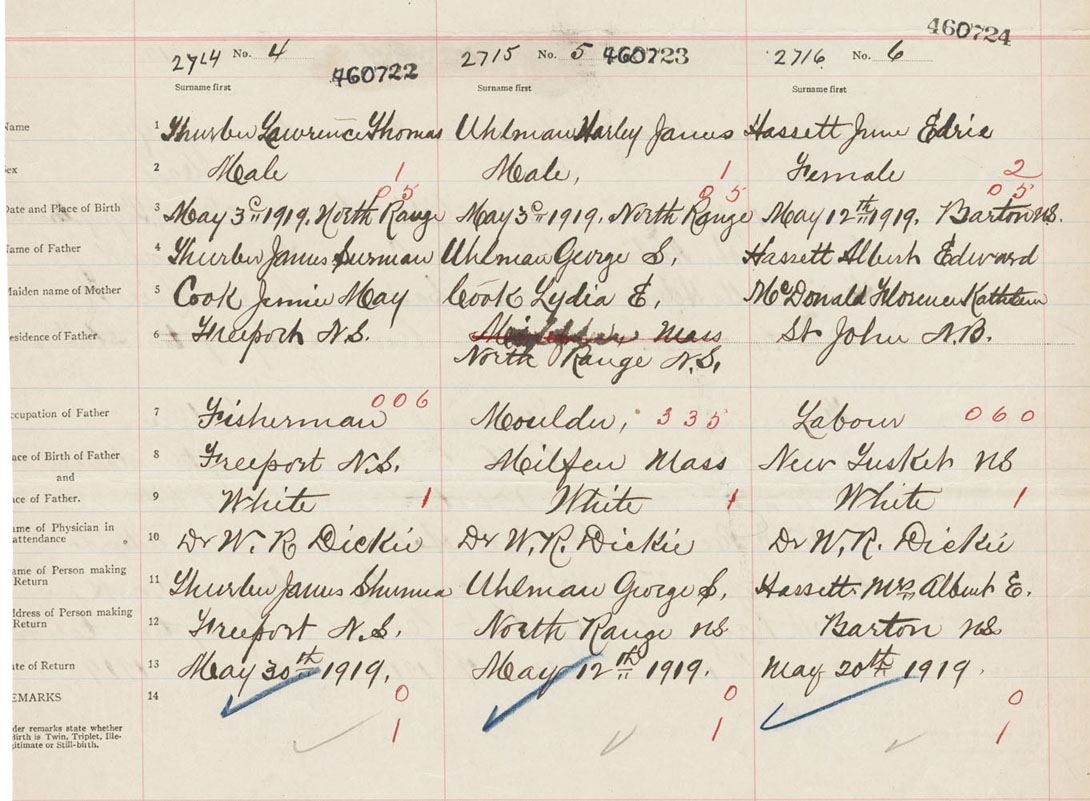 460724
2714 No. 4 2715 No. 5 460723 2716 No. 6
460722
Surname first Surname first Surname first
Name 1 Thurber Lawrence Thomas Uhlman Harley James Hassett June Edrie
Sex 2 Male 1 Male, 1 Female 2
05 05 05
Date and Place of Birth 3 May 3rd 1919. North Range May 3rd 1919. North Range May 12th 1919. Barton NS.
Name of Father 4 Thurber James Uhlman George S. Hassett Albert Edward
Maiden name of Mother 5 Cook Jennie May Cook Lydia E, McDonald Florence Kathleen
Residence of Father 6 Freeport N.S. Mass St John N.B.
North Range N.S,
Occupation of Father 7 Fisherman 006 Moulder, 335 Labour 060
Place of Birth of Father 8 Freeport N.S. Mass New Tusket NS
and
Race of Father. 9 White 1 White 1 White 1
Name of Physician in
attendance 10 Dr W. R Dickie Dr W. R. Dickie Dr W. R. Dickie
Name of Person making
Return 11 Thurber James Uhlman George S, Hassett Mrs Albert E.
Address of Person making
Return 12 Freeport N.S. North Range NS Barton NS
Date of Return 13 May 30th 1919. May 12th 1919. May 20th 1919.
REMARKS 14 0 0 0
Under remarks state whether
Birth is Twin, Triplet, Ille-
gitimate or Still-birth. 1 1 1